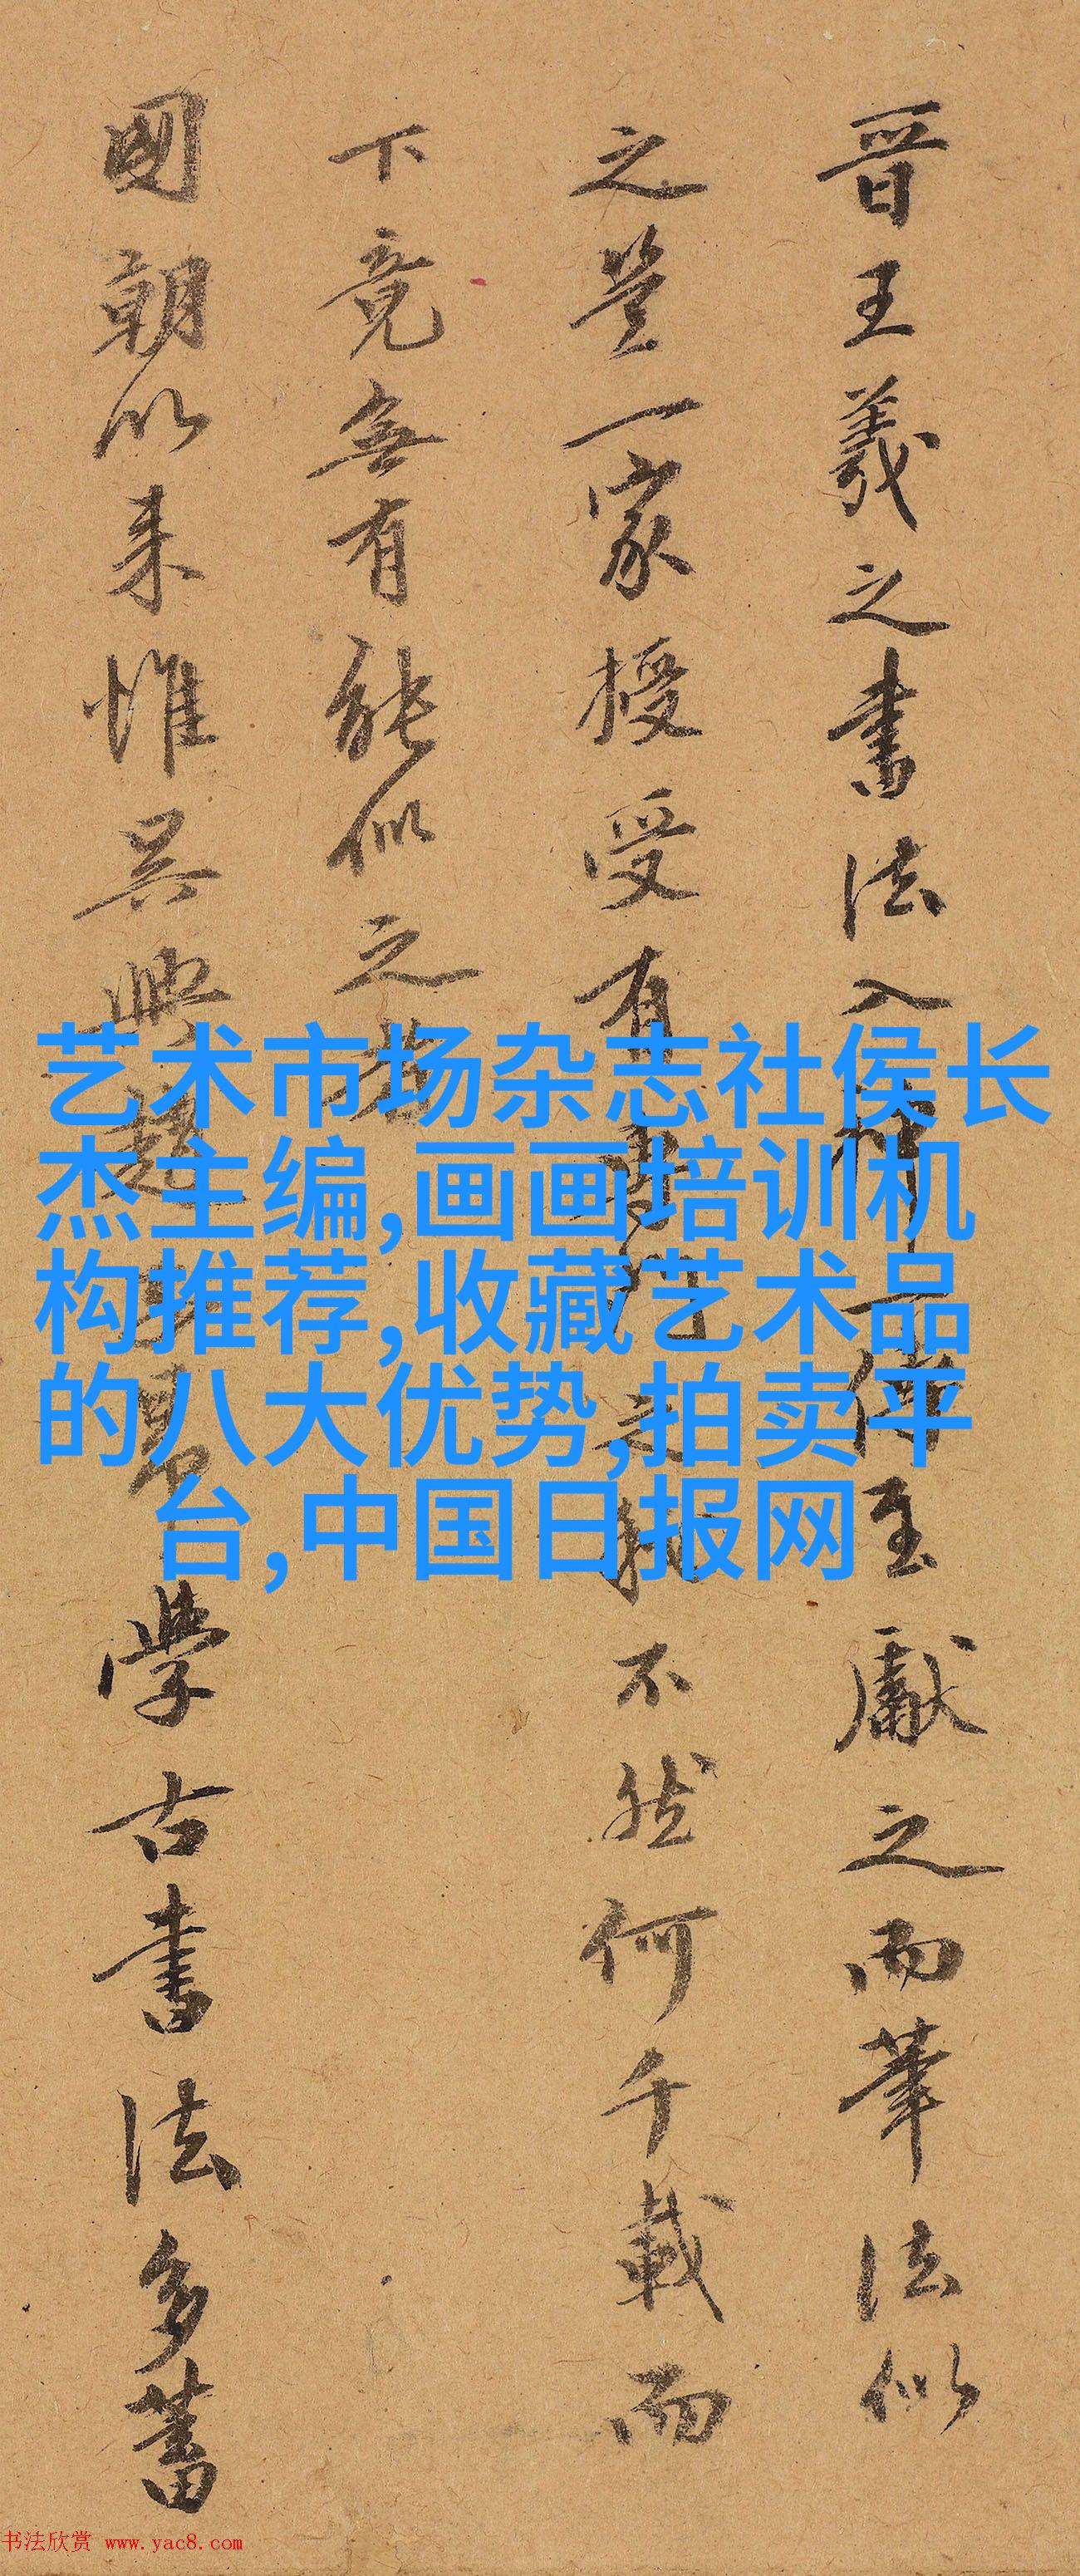 晋王羲之書法入神一傳至獻之而筆法似
之豈一家授受有不然何千載而
下竟無有能似之者
國朝以来惟吴興趙學古書法多蓄
艺术市场杂志社侯长
杰主编,画画培训机
构推荐,收藏艺术品
的八大优势,拍卖平
台,中国日报网
书法欣赏 www.yac8.com